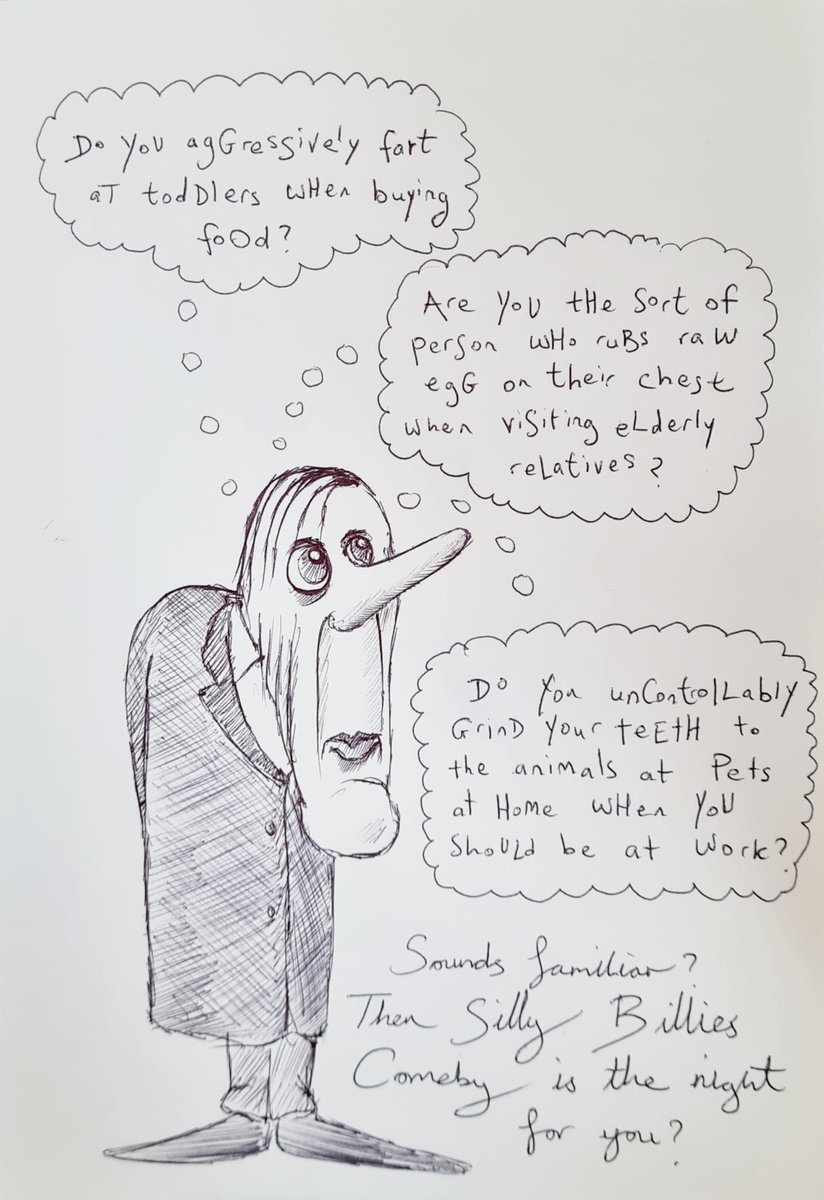 Do you agGressively fart
aT todDlers wHen buying
foOd?
Are you tHe Sort of
person wHo ruBs raW
egG on their chest
when viSiting eLderly
reLatives?
Do You unControlLabLy
GrinD Your tEEtH to
the animals at Pets
at Home wHen you
ShoULd be at work?
Sounds familiar?
Then Silly Billies
Comeby is the night
for you?